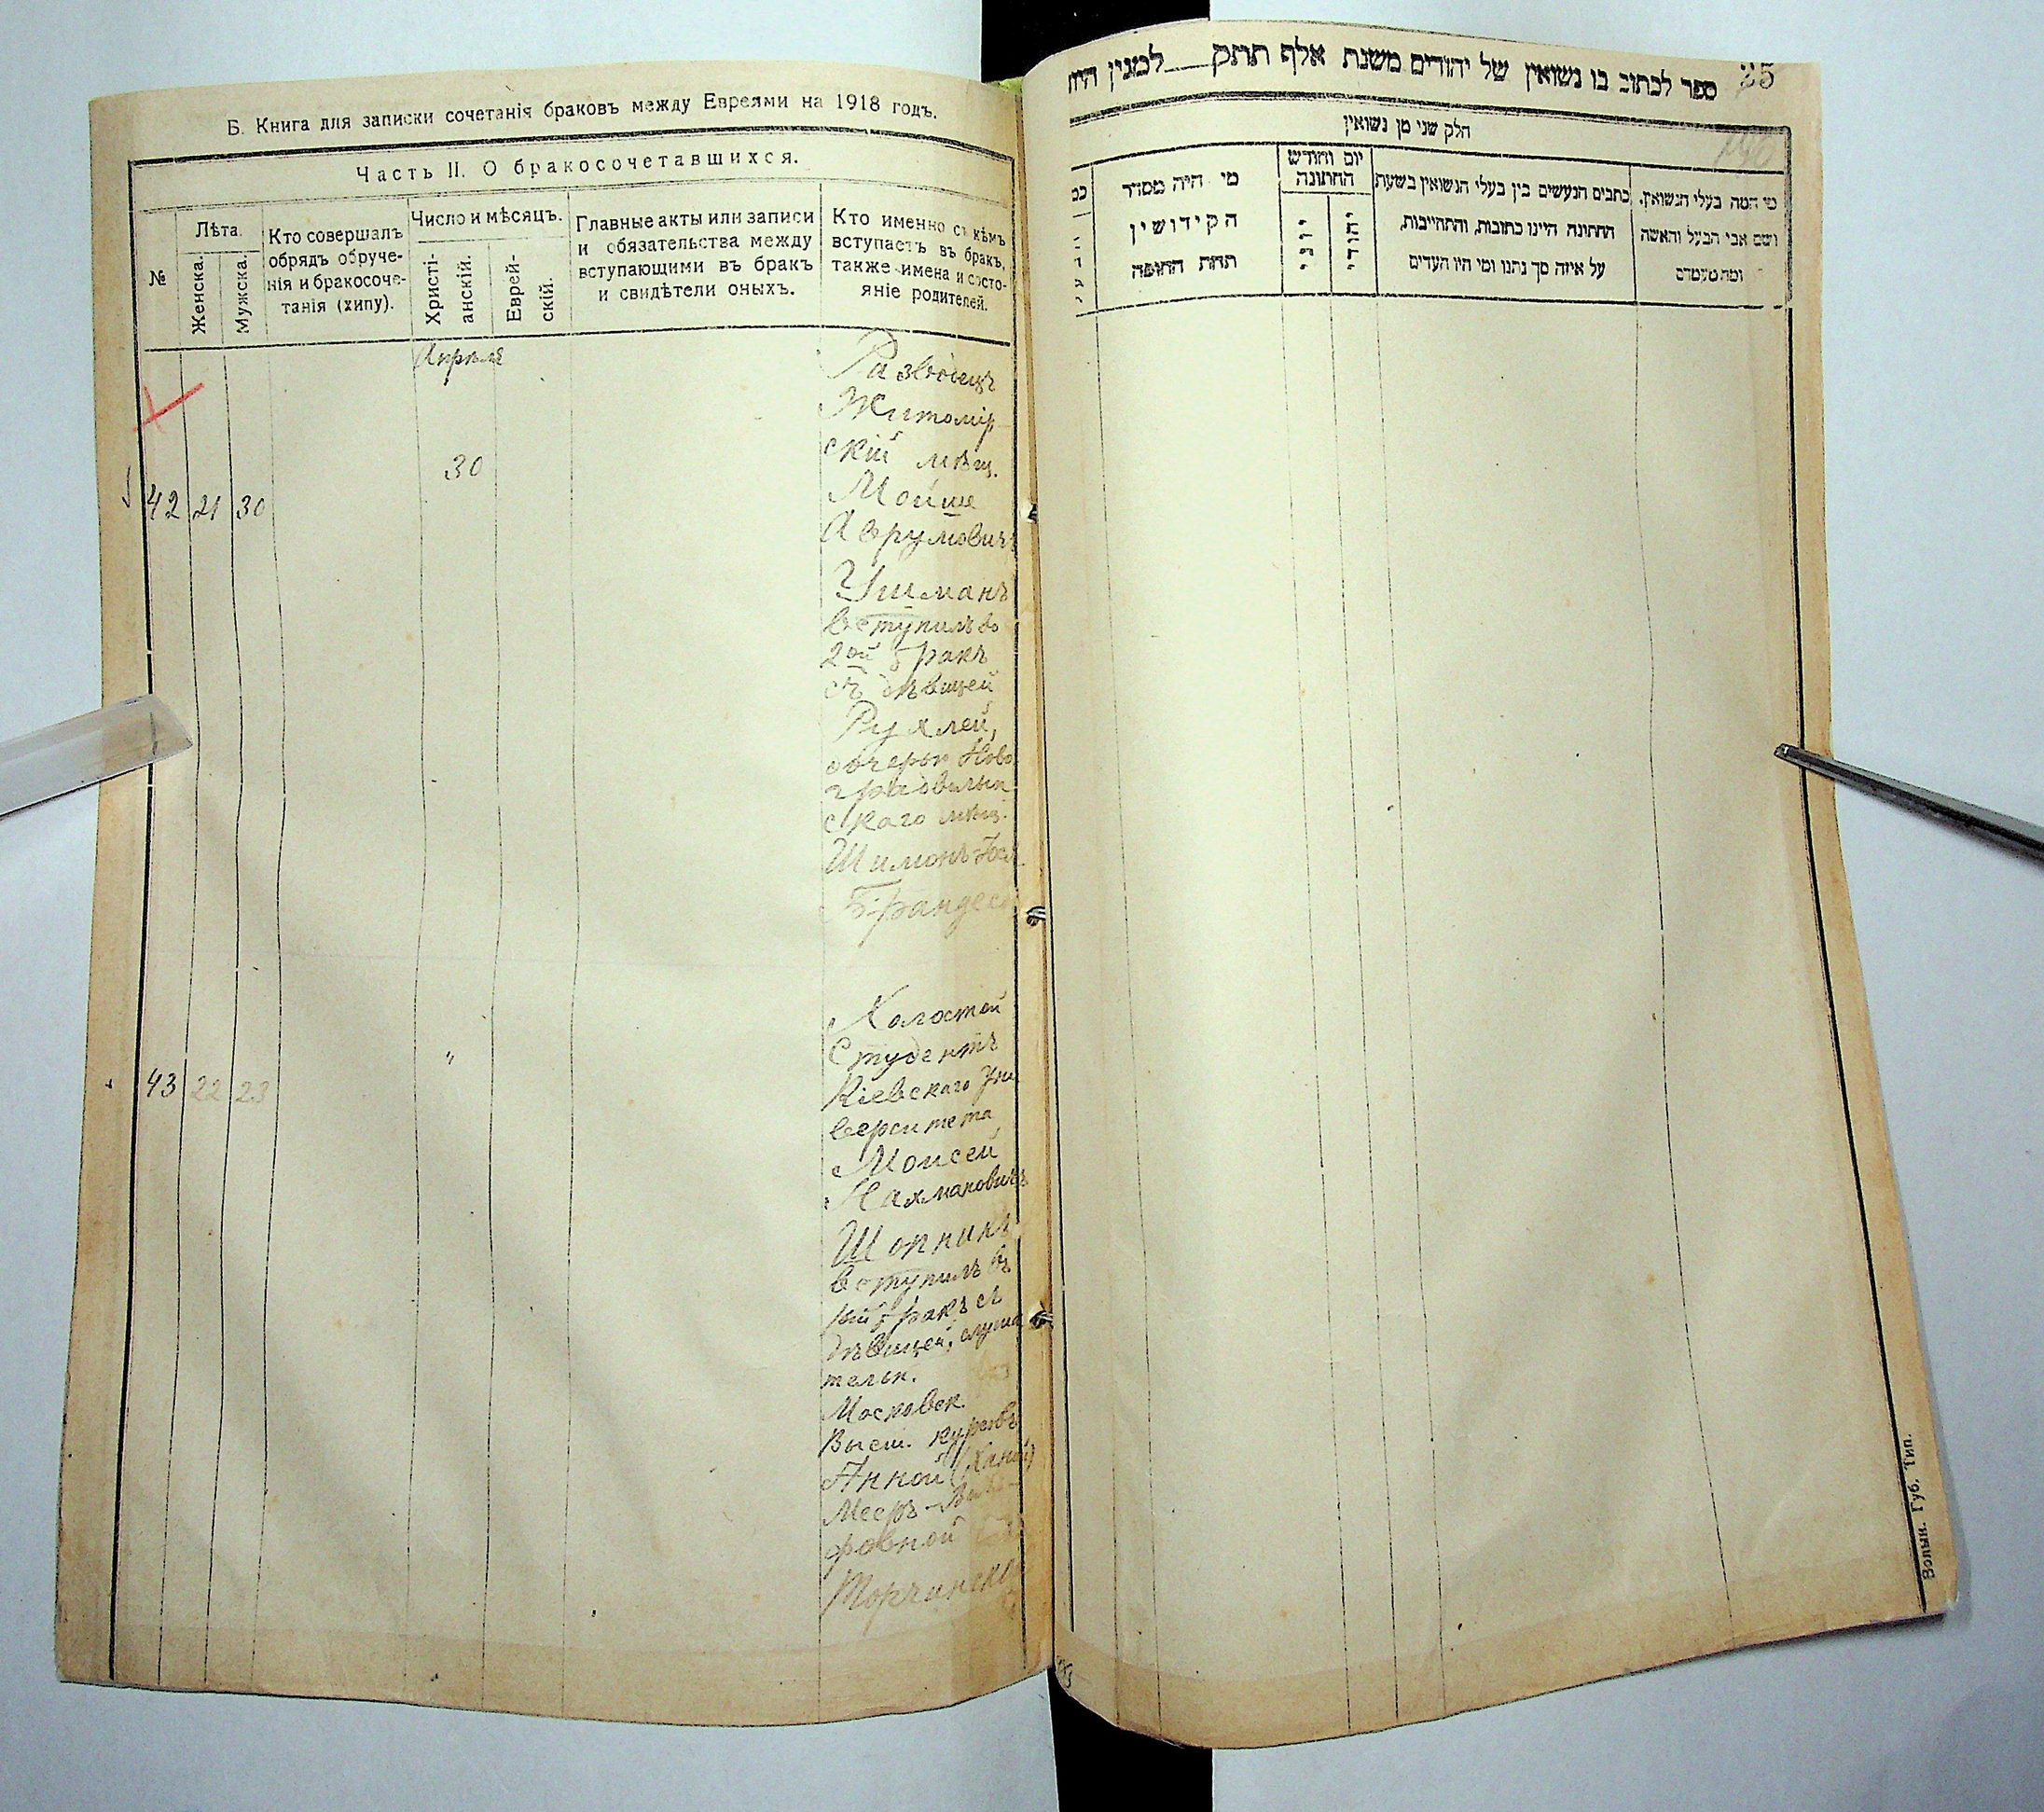 Б. Книга для записки сочетанія браковъ между Евреями на 1918 годъ.
Часть II. О бракосочетавшихся.
№
Лѣта.
Женска.
Мужска.
Кто совершалъ
обрядъ обруче-
нія и бракосоче-
танія (хипу).
Число и мѣсяцъ.
Христі-
анскій.
Еврей-
скій.
Главные акты или записи
и обязательства между
вступающими въ бракъ
и свидѣтели оныхъ.
Кто именно съ кѣмъ
вступаетъ въ бракъ,
также имена и состо-
яніе родителей.
Апрѣля
42 21 30
30
Разводецъ
Житомір
скій мѣщ.
Мойше
Аврумовичъ
вступилъ во
2ой бракъ
съ дѣвицей
Рухлей,
дочерью Ново
градволын
скаго мѣщ.
Шимонъ
43 22 23
"
Холостой
Студентъ
Кіевскаго Уни
верситета
Моисей
Нахмановичъ
Шорникъ
вступилъ въ
1ый бракъ съ
дѣвицей, слуша
тельн.
Московск.
Высш. курсовъ
Анной (Ханой)
Мееръ-
фовной
25
ספר לכתוב בו נשואין של יהודים משנת אלף תתק__למנין היוו
חלק שני מן נשואין
מי המה בעלי הנשואין,
ושם אבי הבעל והאשה
ומה מעמדם
כתבים הנעשים בין בעלי הנשואין בשעת
החתונה היינו כתובות, והתחייבות,
על איזה סך נתנו ומי היו העדים
יום וחודש
החתונה
יהודי
יוני
מי היה מסדר
הקידושין
תחת החופה
Волын. Губ. Тип.